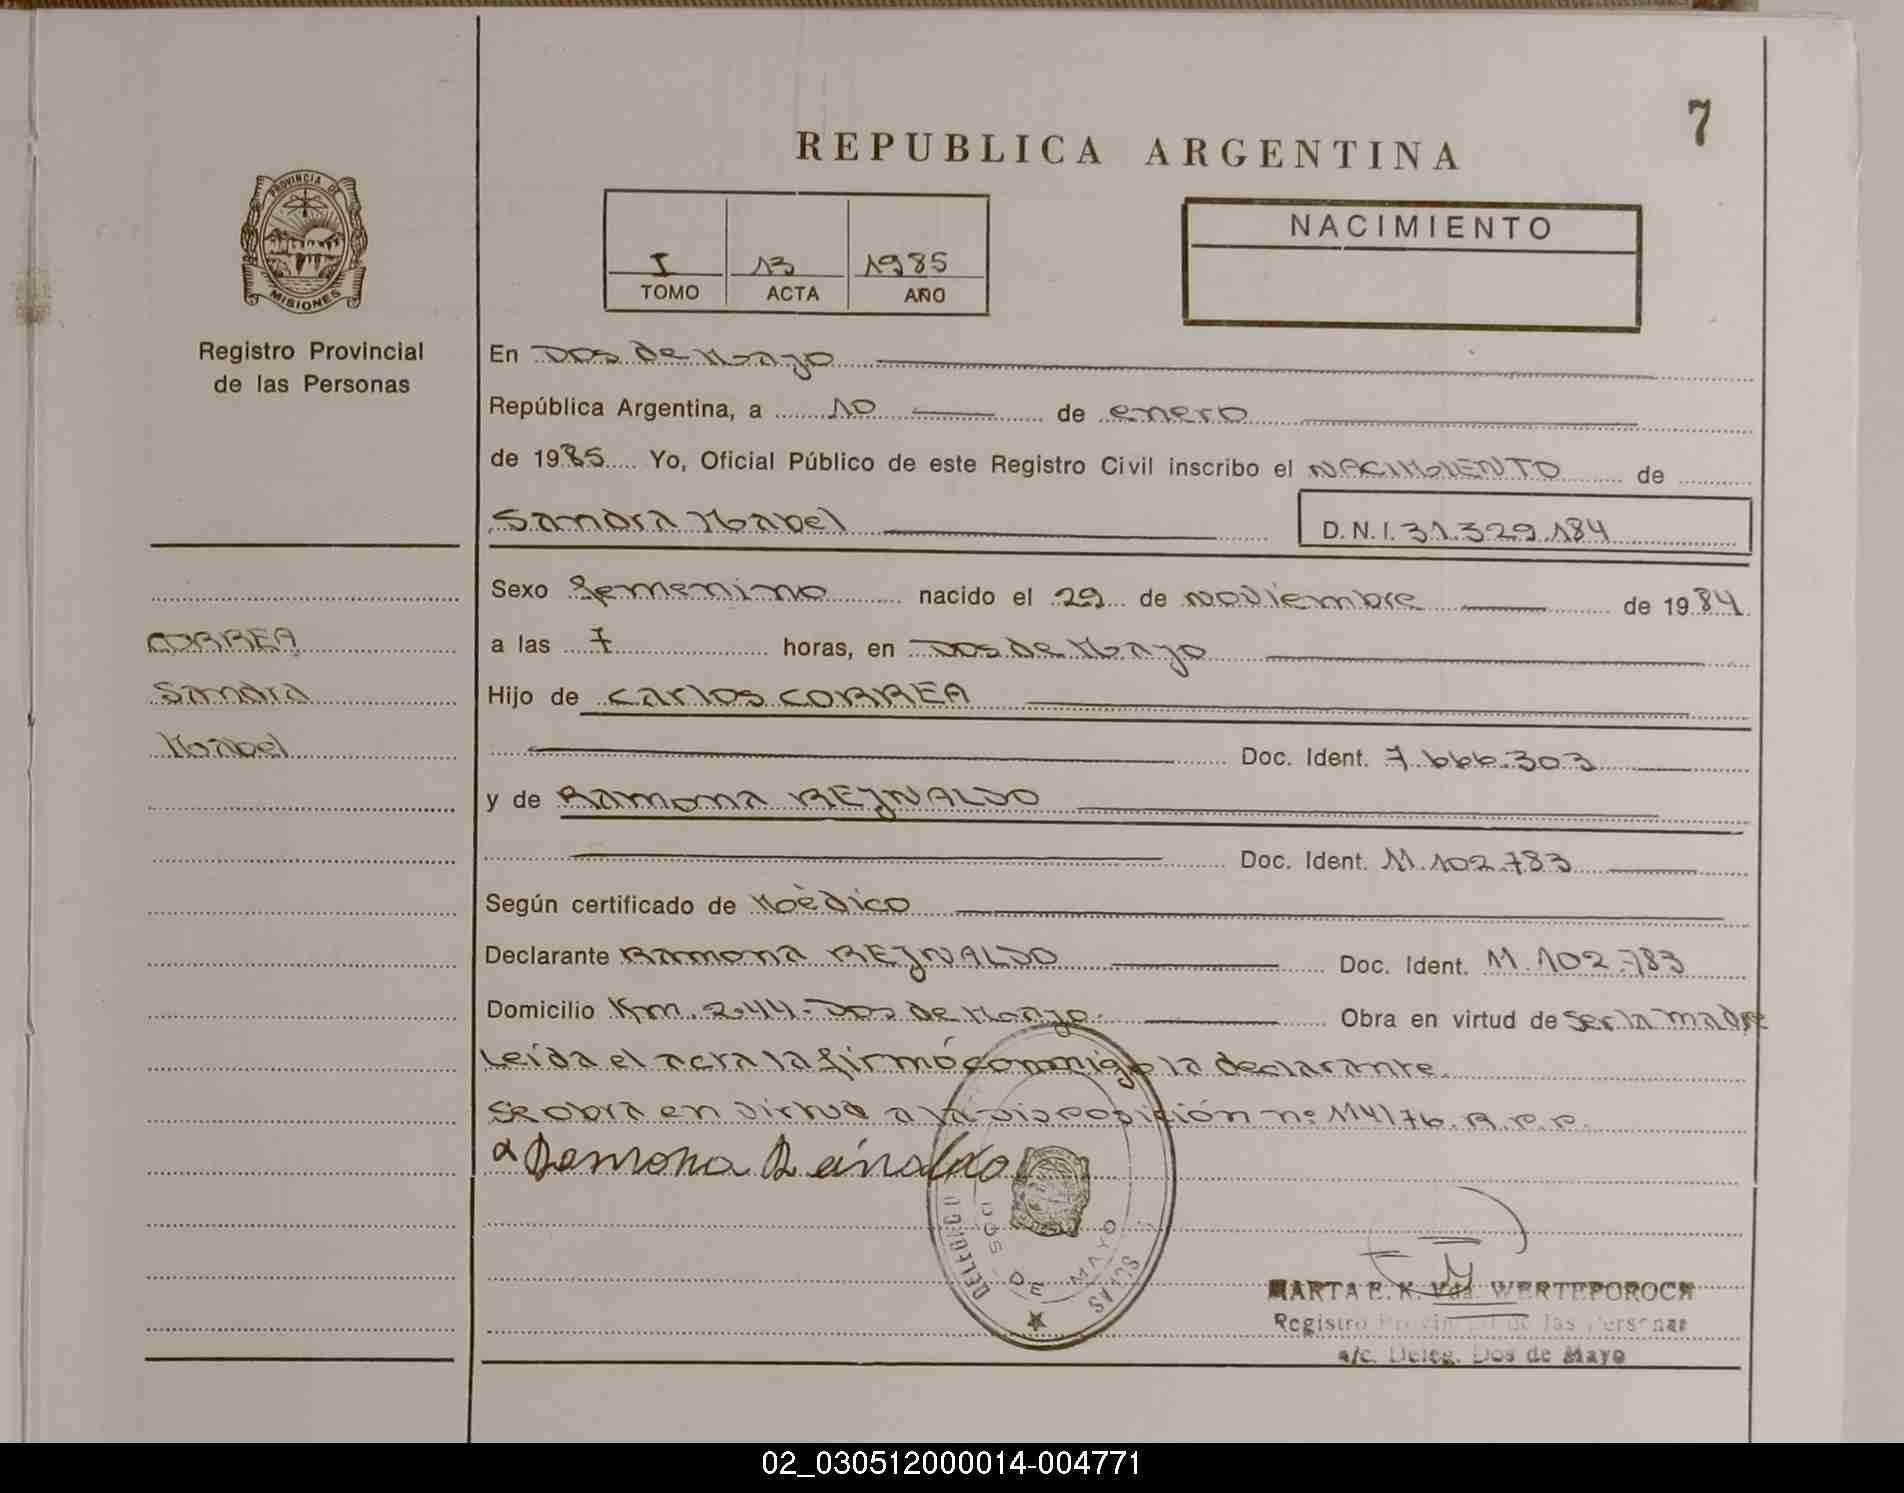 7
REPUBLICA ARGENTINA
PROVINCIA DE
MISIONES
Registro Provincial
de las Personas
I 13 1985
TOMO ACTA AÑO
NACIMIENTO
En Dos de Mayo
República Argentina, a 10 de enero
de 1985 Yo, Oficial Público de este Registro Civil inscribo el NACIMIENTO de
Sandra Mabel
D.N.I. 31.329.184
Sexo femenino nacido el 29 de noviembre de 1984
a las 7 horas, en Dos de Mayo
Hijo de Carlos CORREA
Doc. Ident. 7.666.303
y de Ramona REYNALDO
Doc. Ident. 11.102.783
Según certificado de Mèdico
Declarante Ramona REYNALDO Doc. Ident. 11.102.783
Domicilio Km. 244. Dos de Mayo. Obra en virtud de ser la madre
Leída el acta la firmó conmigo la declarante.
Se obra en virtud a la disposición nº 114/76. R.P.P.
Ramona Reinaldo
CORREA
Sandra
Mabel
DOS DE MAYO
MARTA E. K. Vda. WERTEPOROCH
Registro Provincial de las Personas
a/c. Deleg. Dos de Mayo
02_030512000014-004771